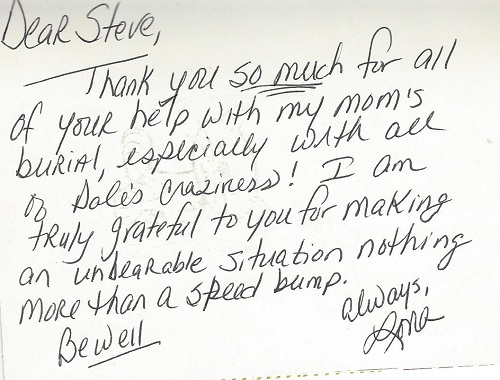 Dear Steve,
Thank you so much for all
of your help with my mom's
burial, especially with all
of Dale's craziness! I am
truly grateful to you for making
an unbearable situation nothing
more than a speed bump.
Be well
always,
Rona